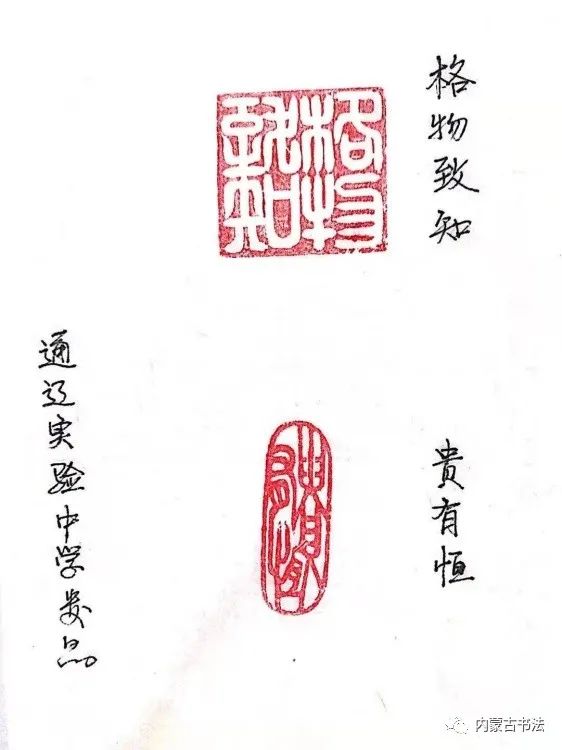 格物致知
格物致知
貴有恒
貴有恒
通辽实验中学
内蒙古书法